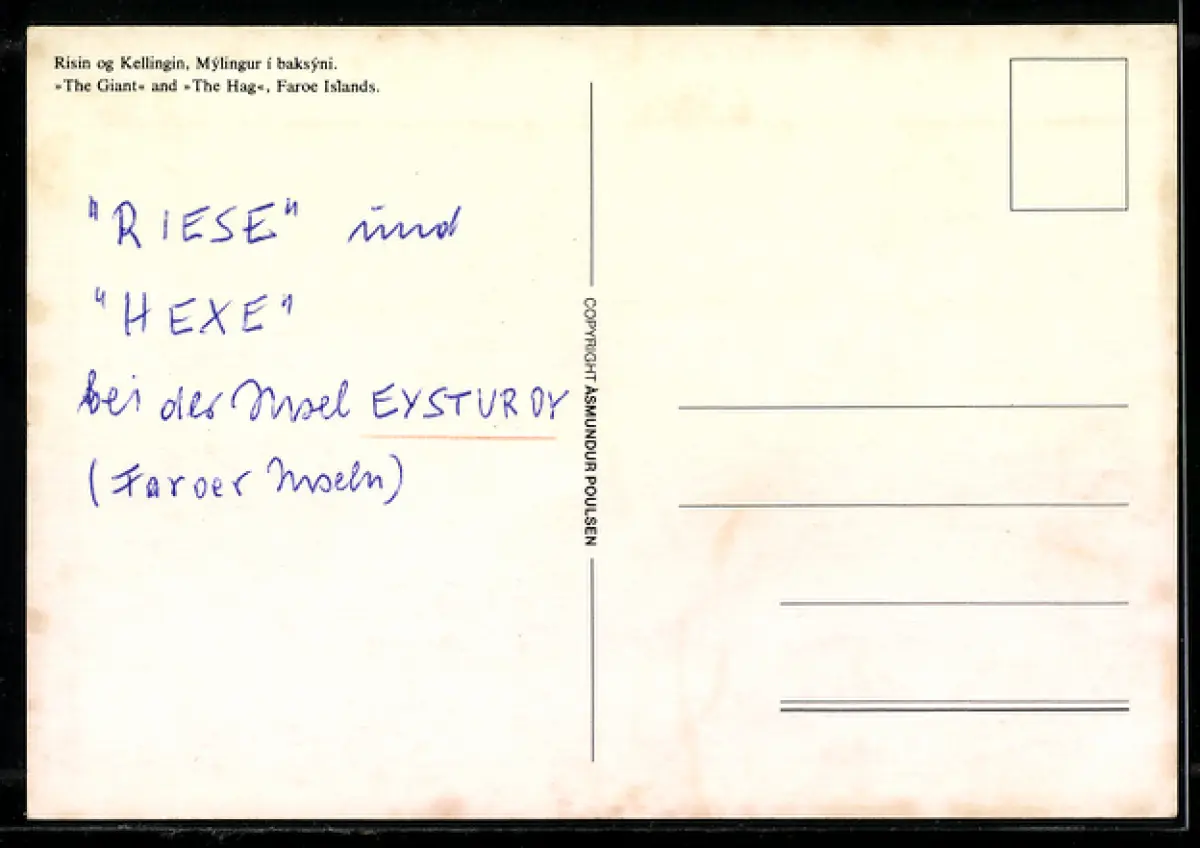 Risin og Kellingin, Mýlingur í baksýni.
»The Giant« and »The Hag«, Faroe Islands.
"RIESE" und
"HEXE"
bei der Insel EYSTUROY
(Faroer Inseln)
COPYRIGHT ÁSMUNDUR POULSEN